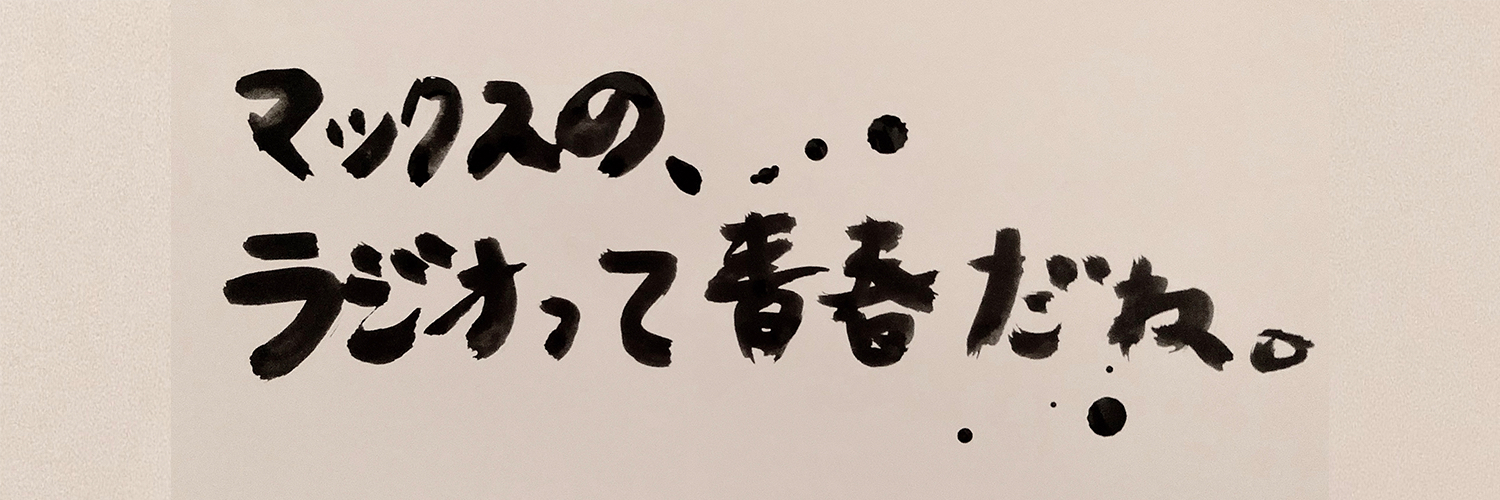 マックスの、
ラジオって青春だね。